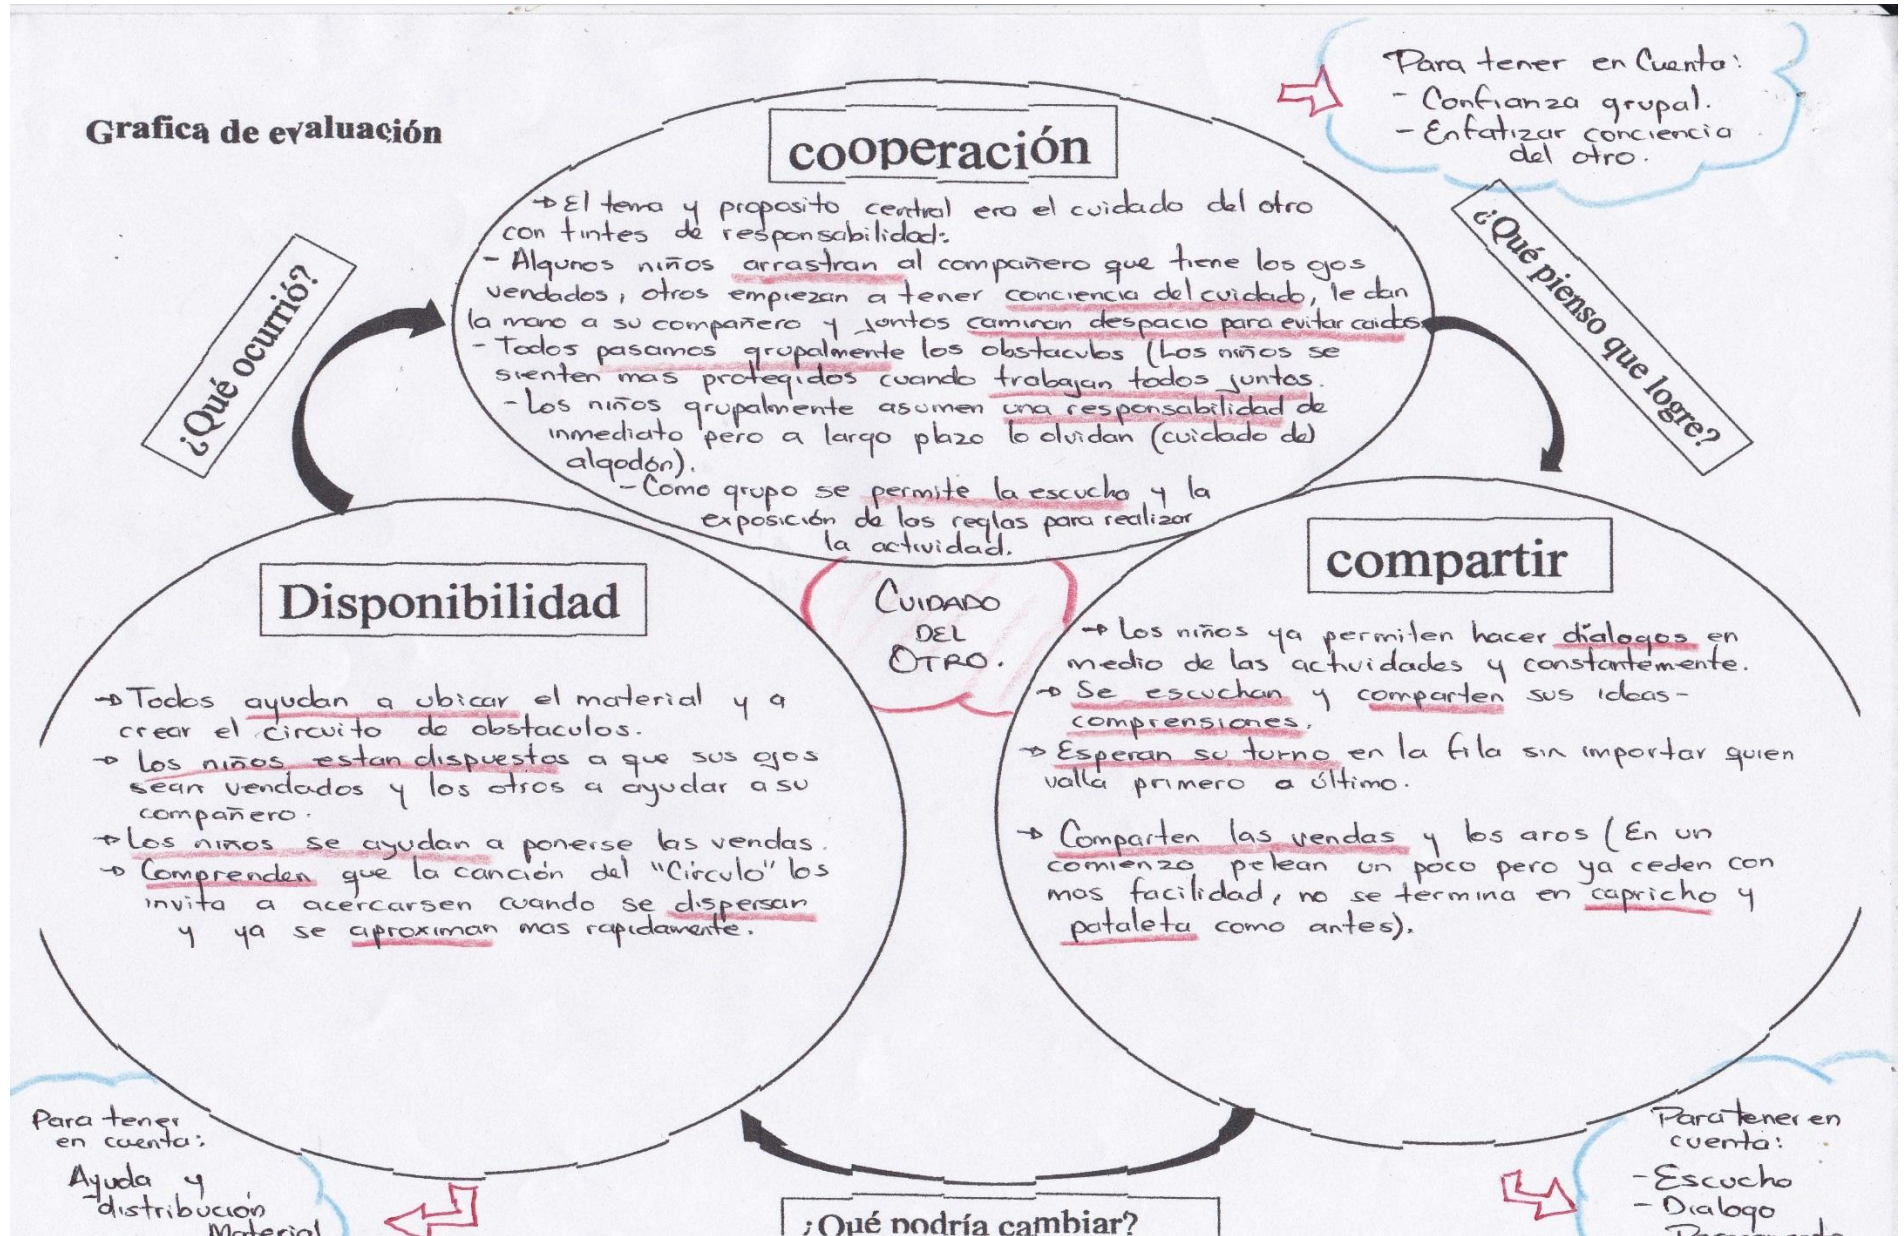 Grafica de evaluación
Para tener en Cuenta:
- Confianza grupal.
- Enfatizar conciencia
del otro.
¿Qué ocurrió?
cooperación
→ El tema y proposito central era el cuidado del otro
con tintes de responsabilidad:
- Algunos niños arrastran al compañero que tiene los ojos
vendados, otros empiezan a tener conciencia del cuidado, le dan
la mano a su compañero y juntos caminan despacio para evitar caidas
- Todos pasamos grupalmente los obstaculos (Los niños se
sienten mas protegidos cuando trabajan todos juntos.
- Los niños grupalmente asumen una responsabilidad de
inmediato pero a largo plazo lo olvidan (cuidado del
algodón).
- Como grupo se permite la escucha y la
exposición de las reglas para realizar
la actividad.
¿Qué pienso que logre?
CUIDADO
DEL
OTRO.
Disponibilidad
→ Todos ayudan a ubicar el material y a
crear el circuito de obstaculos.
→ Los niños estan dispuestos a que sus ojos
sean vendados y los otros a ayudar a su
compañero.
→ Los niños se ayudan a ponerse las vendas.
→ Comprenden que la canción del "Circulo" los
invita a acercarsen cuando se dispersan
y ya se aproximan mas rapidamente.
compartir
→ Los niños ya permiten hacer dialogos en
medio de las actividades y constantemente.
→ Se escuchan y comparten sus ideas-
comprensiones.
→ Esperan su turno en la fila sin importar quien
valla primero a último.
→ Comparten las vendas y los aros (En un
comienzo pelean un poco pero ya ceden con
mas facilidad, no se termina en capricho y
pataleta como antes).
Para tener
en cuenta:
Ayuda y
distribución
Material
¿Qué podría cambiar?
Para tener en
cuenta:
- Escucha
- Dialogo